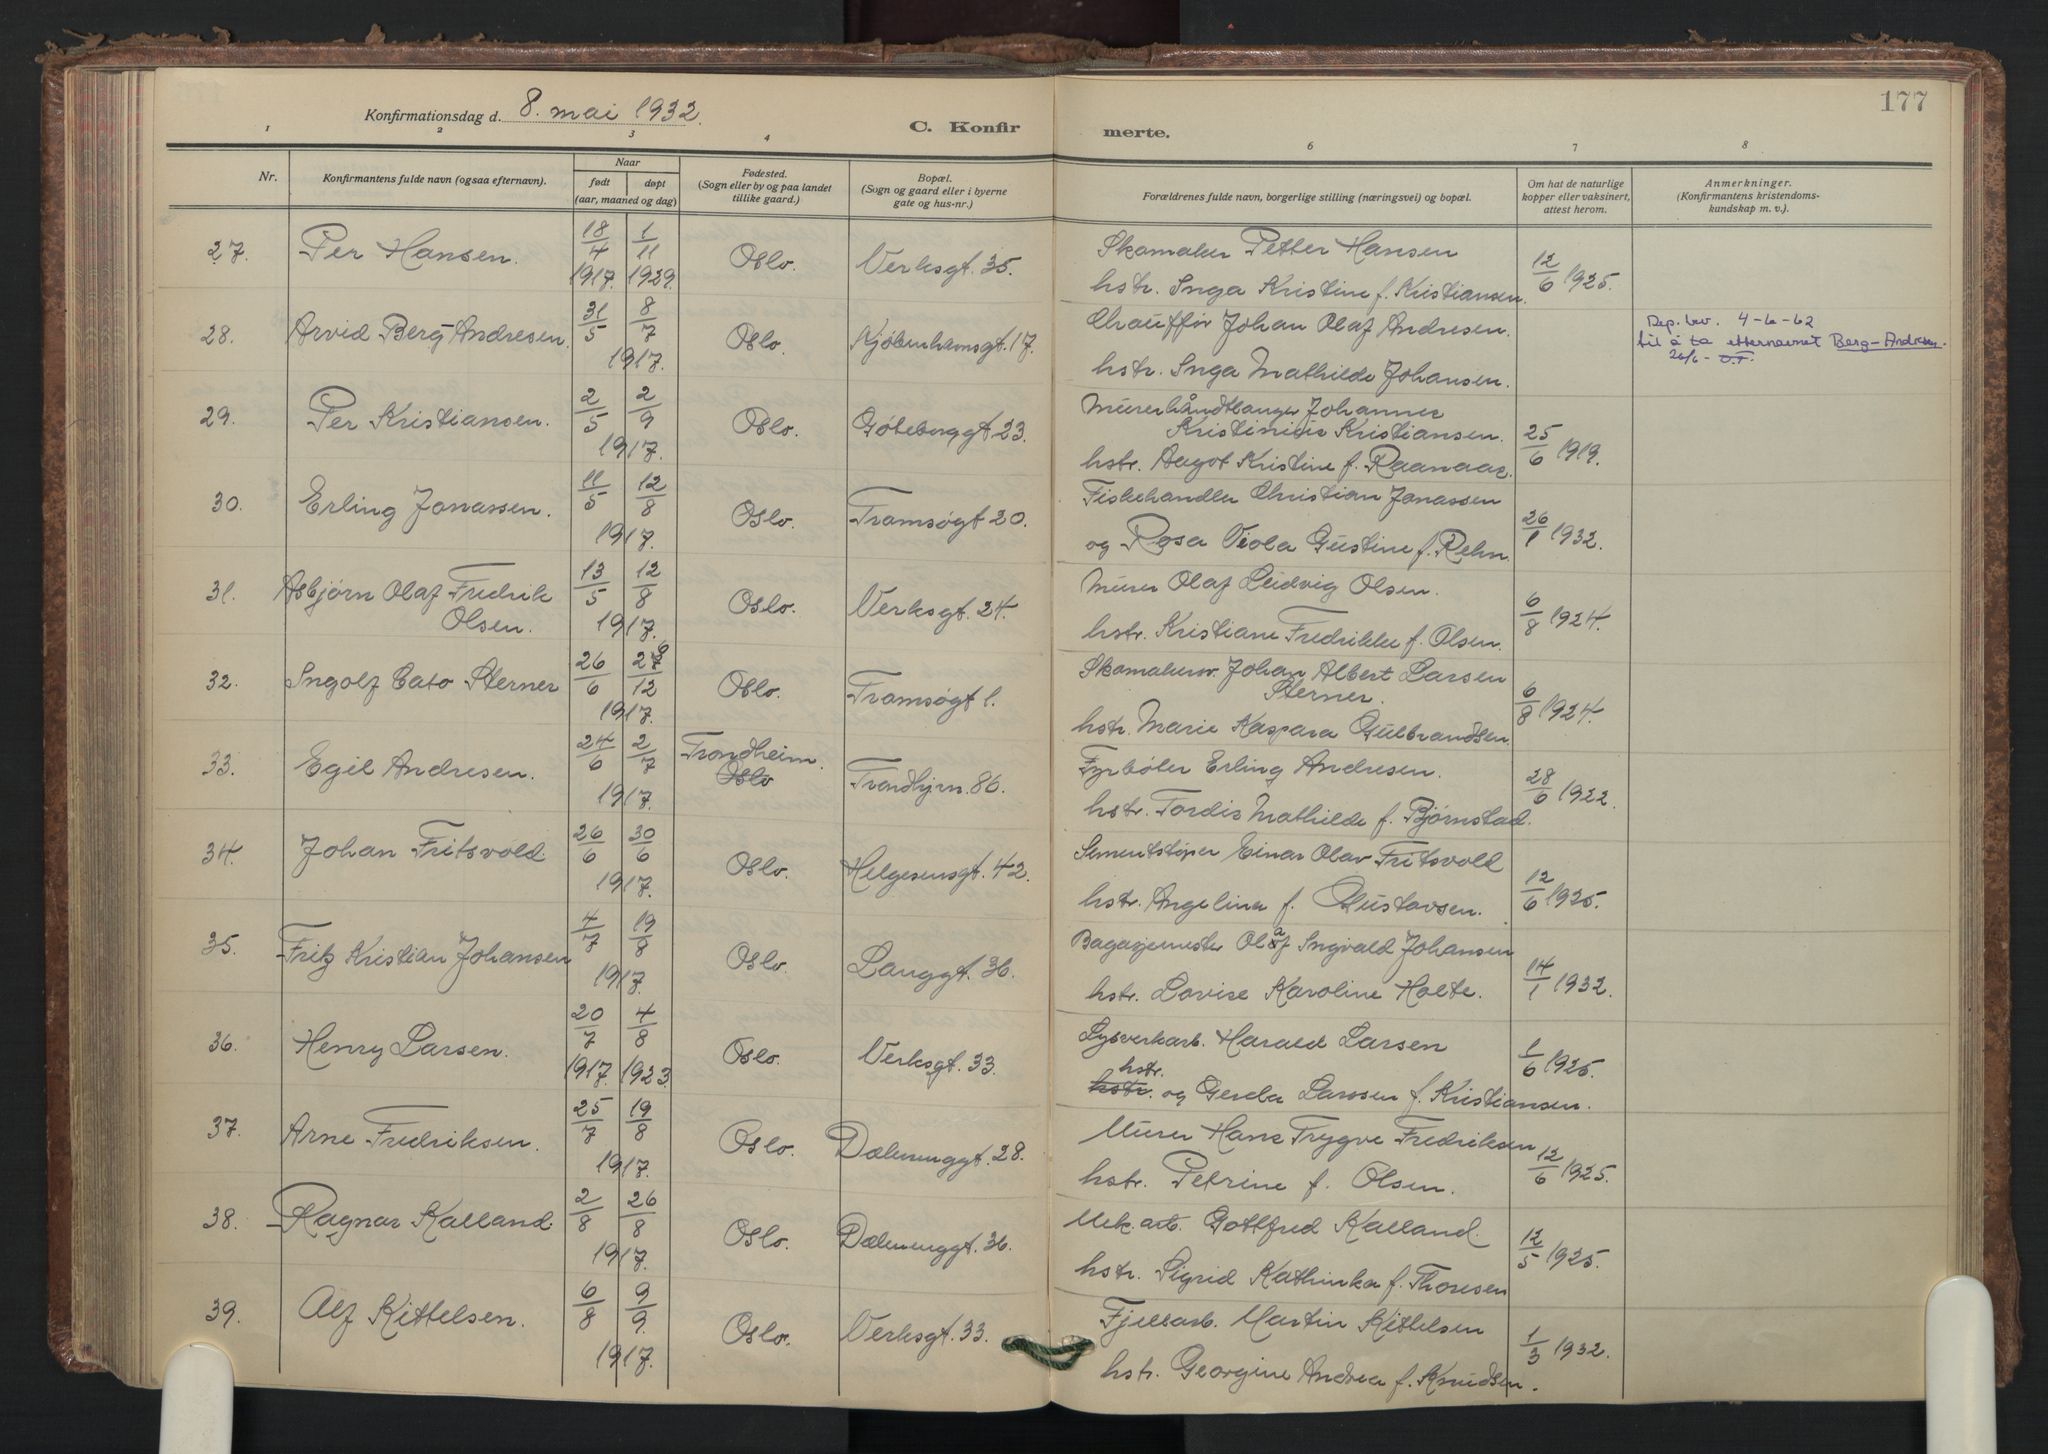 177
Konfirmationsdag d. 8. mai 1932.
C. Konfirmerte.
1 2 3 4 6 7 8
Nr. Konfirmantens fulde navn (ogsaa efternavn). Naar født døpt (aar, maaned og dag) Fødested. (Sogn eller by og paa landet tillike gaard.) Bopæl. (Sogn og gaard eller i byerne gate og hus-nr.) Forældrenes fulde navn, borgerlige stilling (næringsvei) og bopæl. Om hat de naturlige kopper eller vaksinert, attest herom. Anmerkninger. (Konfirmantens kristendomskundskap m. v.).
27. Per Hansen. 18/4 1917. 1/11 1929. Oslo. Verksgt. 35. Skomaker Petter Hansen 12/6 1925.
hstr. Inga Kristine f. Kristiansen.
28. Arvid Berg Andresen. 31/5 8/7 1917. Oslo. Kjøbenhavnsgt. 17. Chauffør Johan Olaf Andresen.
hstr. Inga Mathilde Johansen.
Dep. bev. 4-6-62
til å ta etternavnet Berg-Andresen.
26/6 - O.F.
29. Per Kristiansen. 2/5 2/9 1917. Oslo. Gøteborggt 23. Murerhåndtlanger Johannes
Kristinius Kristiansen. 25/6 1919.
hstr. Aagot Kristine f. Raanaas.
30. Erling Jonassen. 11/5 12/8 1917. Oslo. Tromsøgt 20. Fiskehandler Christian Jonassen 26/1 1932.
og Rosa Viola Gustine f. Rehn.
31. Asbjørn Olaf Fredrik
Olsen. 13/5 12/8 1917. Oslo. Verksgt. 24. Murer Olaf Ludvig Olsen. 6/8 1924.
hstr. Kristiane Fredrikke f. Olsen.
32. Ingolf Cato Sterner 26/6 /12 1917. Oslo. Tromsøgt 1. Skomakersv. Johan Albert Larsen
Sterner. 6/8 1924.
hstr. Marie Kaspara Gulbrandsen.
33. Egil Andresen. 24/6 2/7 1917. Trondheim. Oslo Trondhjm. 86. Fyrbøter Erling Andresen. 28/6 1922.
hstr. Tordis Mathilde f. Bjørnstad.
34. Johan Fritsvold 26/6 30/6 1917. Oslo. Helgesensgt. 42. Sementstøper Einar Olav Fritsvold 12/6 1925.
hstr. Angelina f. Gustavsen.
35. Fritz Kristian Johansen 4/7 19/8 1917. Oslo. Langgt. 36. Bagasjemester Olaf Ingvald Johansen 14/1 1932.
hstr. Lovise Karoline Holte.
36. Henry Larsen. 20/7 1917. 4/8 1923. Oslo. Verksgt. 33. Lysverkarb. Harald Larsen 1/6 1925.
hstr.
hstr. og Gerda Larssen f. Kristiansen.
37. Arne Fredriksen. 25/7 19/8 1917. Oslo. Dælenenggt. 28. Murer Hans Trygve Fredriksen 12/6 1925.
hstr. Petrine f. Olsen.
38. Ragnar Kalland. 2/8 26/8 1917. Oslo. Dælenenggt. 36. Mek. arb. Gottfred Kalland. 12/5 1925.
hstr. Sigrid Kathinka f. Thoresen
39. Alf Kittelsen. 6/8 9/9. 1917. Oslo. Verksgt. 33. Fjellarb. Martin Kittelsen 1/3 1932.
hstr. Georgine Andrea f. Knudsen.